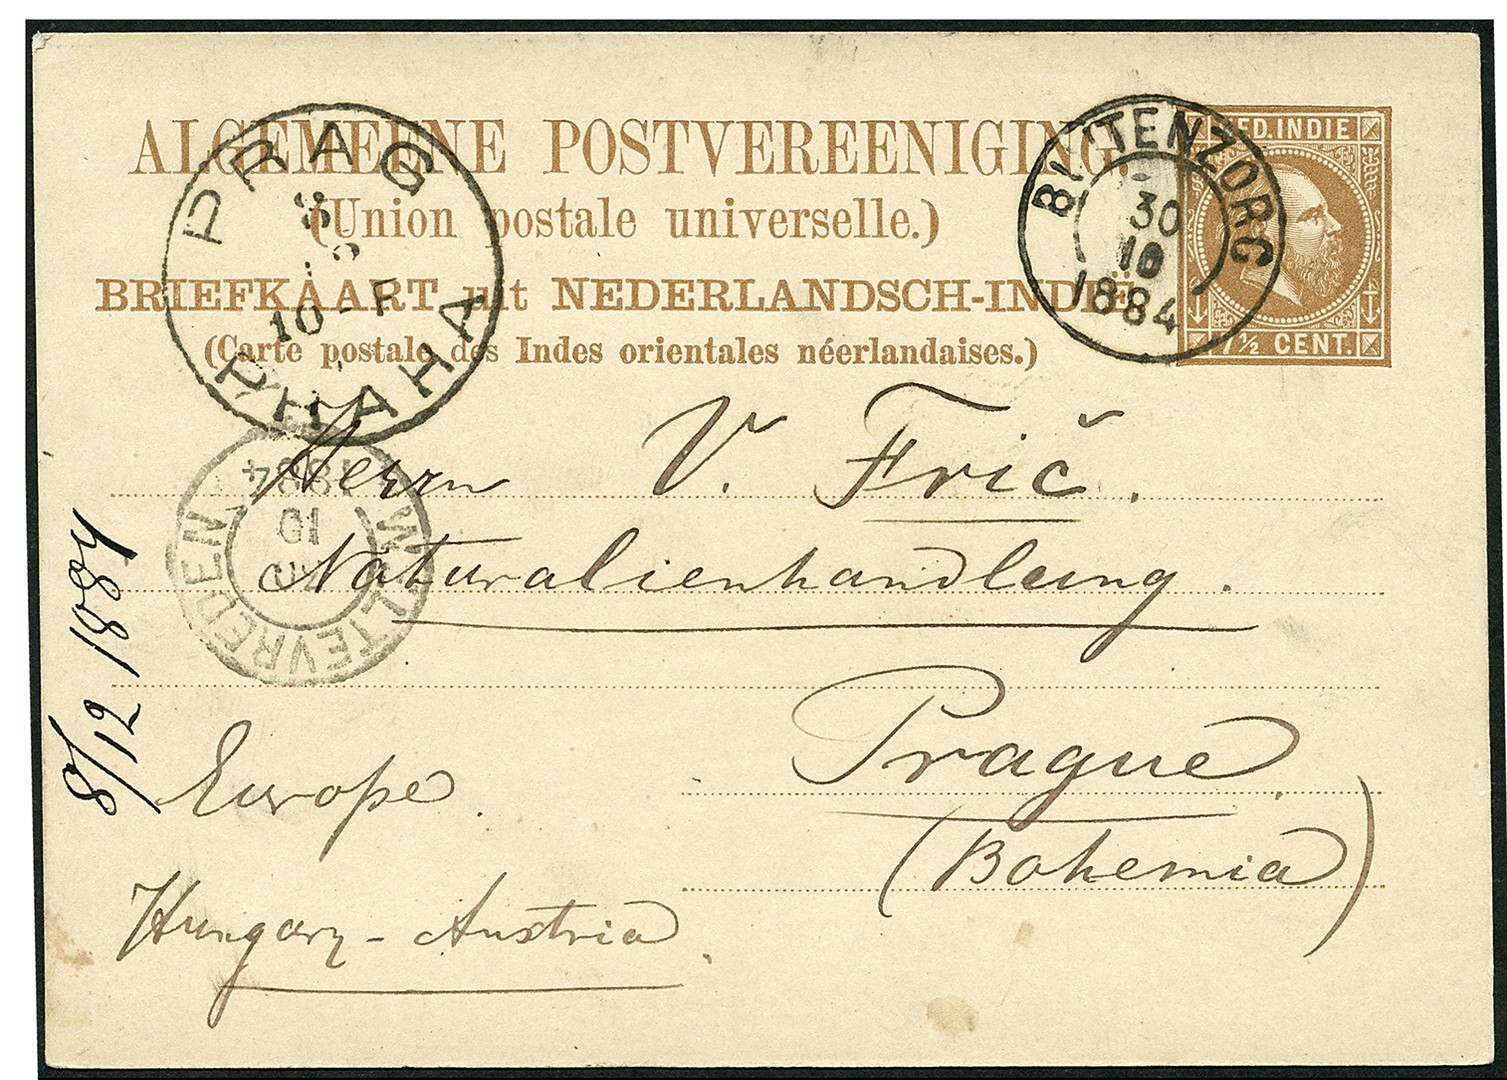 ALGEMEENE POSTVEREENIGING.
(Union postale universelle.)
BRIEFKAART uit NEDERLANDSCH-INDIË
(Carte postale des Indes orientales néerlandaises.)
NED. INDIE
7½ CENT.
BUITENZORG
30
10
1884
PRAG
8
10-F
PRAHA
WELTEVREDEN
10
1884
Herrn V. Frič.
Naturalienhandlung.
Prague.
(Bohemia)
Europe.
Hungary-Austria.
8/12 1884